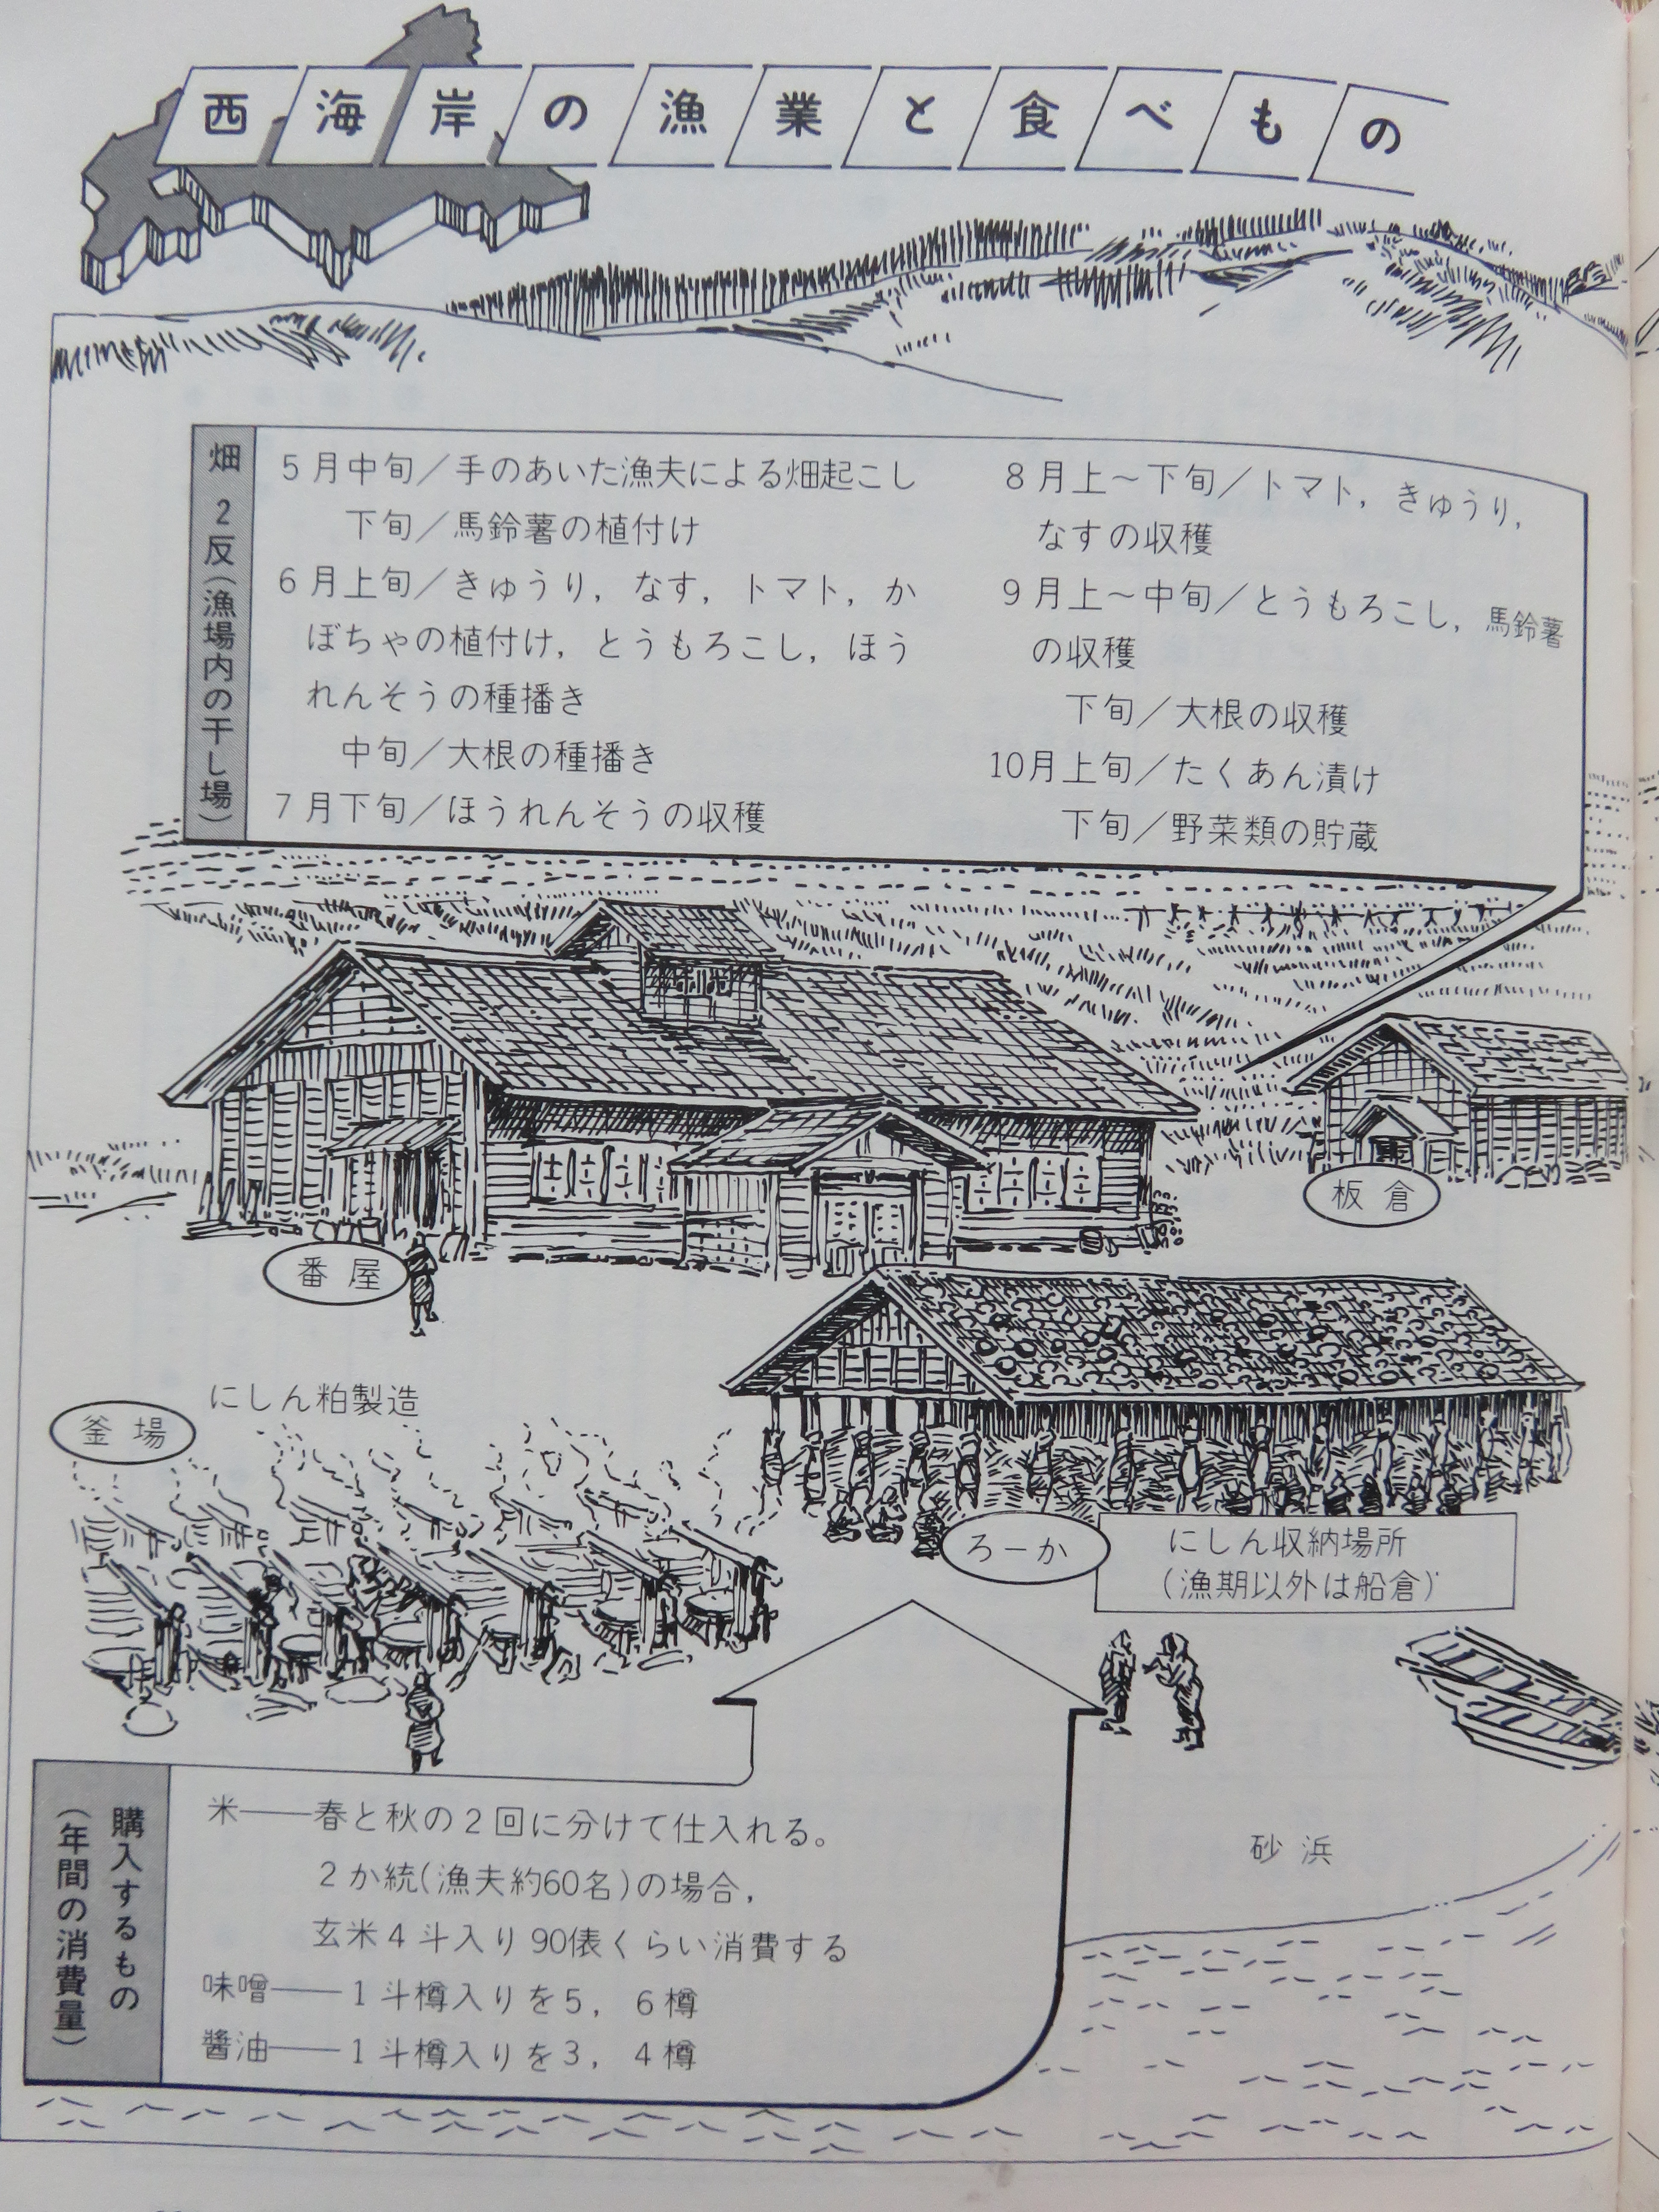 西海岸の漁業と食べもの
畑 2反(漁場内の干し場)
5月中旬／手のあいた漁夫による畑起こし
下旬／馬鈴薯の植付け
6月上旬／きゅうり，なす，トマト，か
ぼちゃの植付け，とうもろこし，ほう
れんそうの種播き
中旬／大根の種播き
7月下旬／ほうれんそうの収穫
8月上～下旬／トマト，きゅうり，
なすの収穫
9月上～中旬／とうもろこし，馬鈴薯
の収穫
下旬／大根の収穫
10月上旬／たくあん漬け
下旬／野菜類の貯蔵
板倉
番屋
にしん粕製造
釜場
ろーか
にしん収納場所
(漁期以外は船倉)
砂浜
購入するもの
(年間の消費量)
米――春と秋の2回に分けて仕入れる。
2か統(漁夫約60名)の場合，
玄米4斗入り90俵くらい消費する
味噌――1斗樽入りを5，6樽
醬油――1斗樽入りを3，4樽